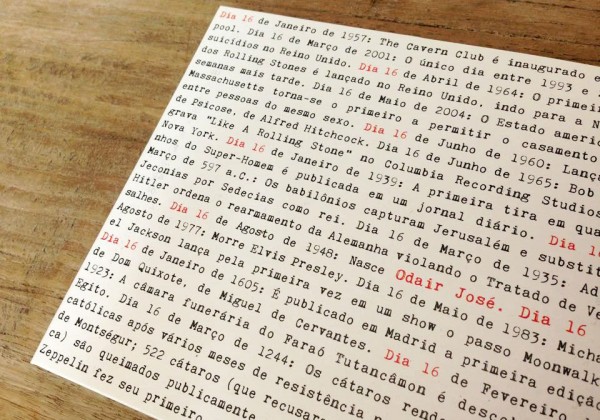 Dia 16 de Janeiro de 1957: The Cavern Club é inaugurado e
pool. Dia 16 de Março de 2001: O único dia entre 1993 e
suicídios no Reino Unido. Dia 16 de Abril de 1964: O primei
dos Rolling Stones é lançado no Reino Unido, indo para a N
semanas mais tarde. Dia 16 de Maio de 2004: O Estado ameri
Massachusetts torna-se o primeiro a permitir o casamento
entre pessoas do mesmo sexo. Dia 16 de Junho de 1960: Lança
de Psicose, de Alfred Hitchcock. Dia 16 de Junho de 1965: Bob
grava "Like A Rolling Stone" no Columbia Recording Studios
Nova York. Dia 16 de Janeiro de 1939: A primeira tira em qua
nhos do Super-Homem é publicada em um jornal diário. Dia 1
Março de 597 a.C.: Os babilônios capturam Jerusalém e substit
Jeconias por Sedecias como rei. Dia 16 de Março de 1935: Ad
Hitler ordena o rearmamento da Alemanha violando o Tratado de Ve
salhes. Dia 16 de Agosto de 1948: Nasce Odair José. Dia 16
Agosto de 1977: Morre Elvis Presley. Dia 16 de Maio de 1983: Micha
el Jackson lança pela primeira vez em um show o passo Moonwalk
Dia 16 de Janeiro de 1605: É publicado em Madrid a primeira ediçã
de Dom Quixote, de Miguel de Cervantes. Dia 16 de Fevereiro
1923: A câmara funerária do Faraó Tutancâmon é desco
Egito. Dia 16 de Março de 1244: Os cátaros rende
católicas após vários meses de resistência
de Montségur; 522 cátaros (que recusar
ca) são queimados publicamente
Zeppelin fez seu primeiro